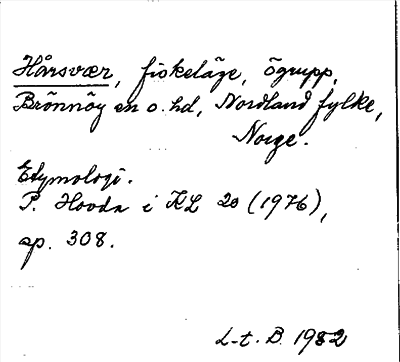 Hårsvær, fiskeläge, ögrupp,
Brönnöy sn o. hd, Nordland fylke,
Norge.
Etymologi.
P. Hovda i KL 20 (1976),
sp. 308.
L-t. B. 1982